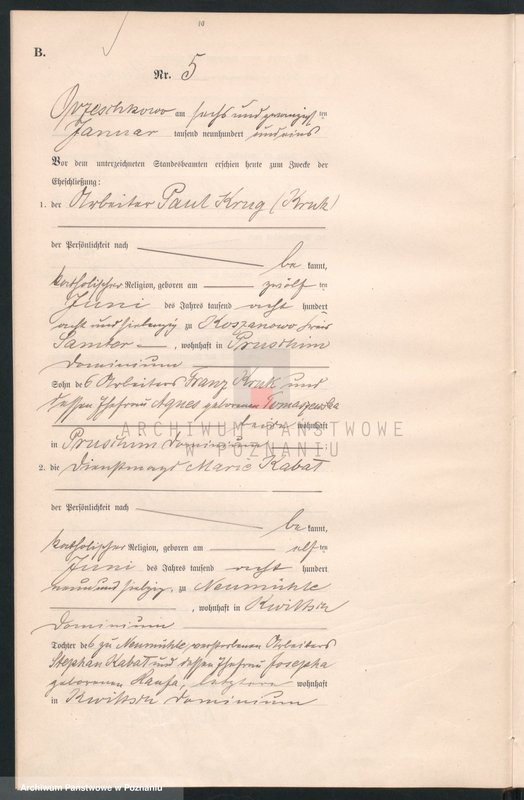 10
B.
Nr. 5
Orzeschkowo am sechs und zwanzigsten
Januar tausend neunhundert und eins
Vor dem unterzeichneten Standesbeamten erschien heute zum Zwecke der
Eheschließung:
1. der Arbeiter Paul Krug (Kruk)
der Persönlichkeit nach
be kannt,
katholischer Religion, geboren am zwölf ten
Juni des Jahres tausend acht hundert
acht und siebenzig zu Koszanowo Kreis
Samter, wohnhaft in Pruschim
Dominium
Sohn des Arbeiters Franz Kruk und
dessen Ehefrau Agnes geborenen Tomaszewska
beide wohnhaft
in Pruschim Dominium
2. die Dienstmagd Marie Kabat
der Persönlichkeit nach
be kannt,
katholischer Religion, geboren am elf ten
Juni des Jahres tausend acht hundert
neun und siebzig, zu Neumühle
, wohnhaft in Kwiltsch
Dominium
Tochter des zu Neumühle verstorbenen Arbeiters
Stephan Kabat und dessen Ehefrau Josepha
geborenen, letztere wohnhaft
in Kwiltsch Dominium
ARCHIWUM PAŃSTWOWE
W POZNANIU
Archiwum Państwowe w Poznaniu